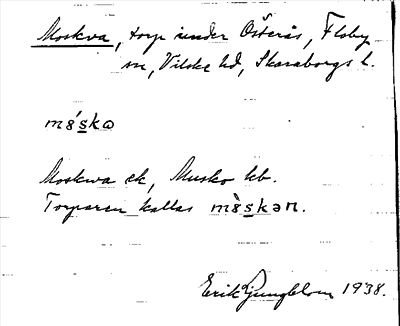 Moskva, torp under Österås, Floby
sn, Vilske hd, Skaraborgs l.
mǿska
Moskwa ek, Musko kb.
Torparen kallas mø̀skən.
Erik Ljungblom 1938.